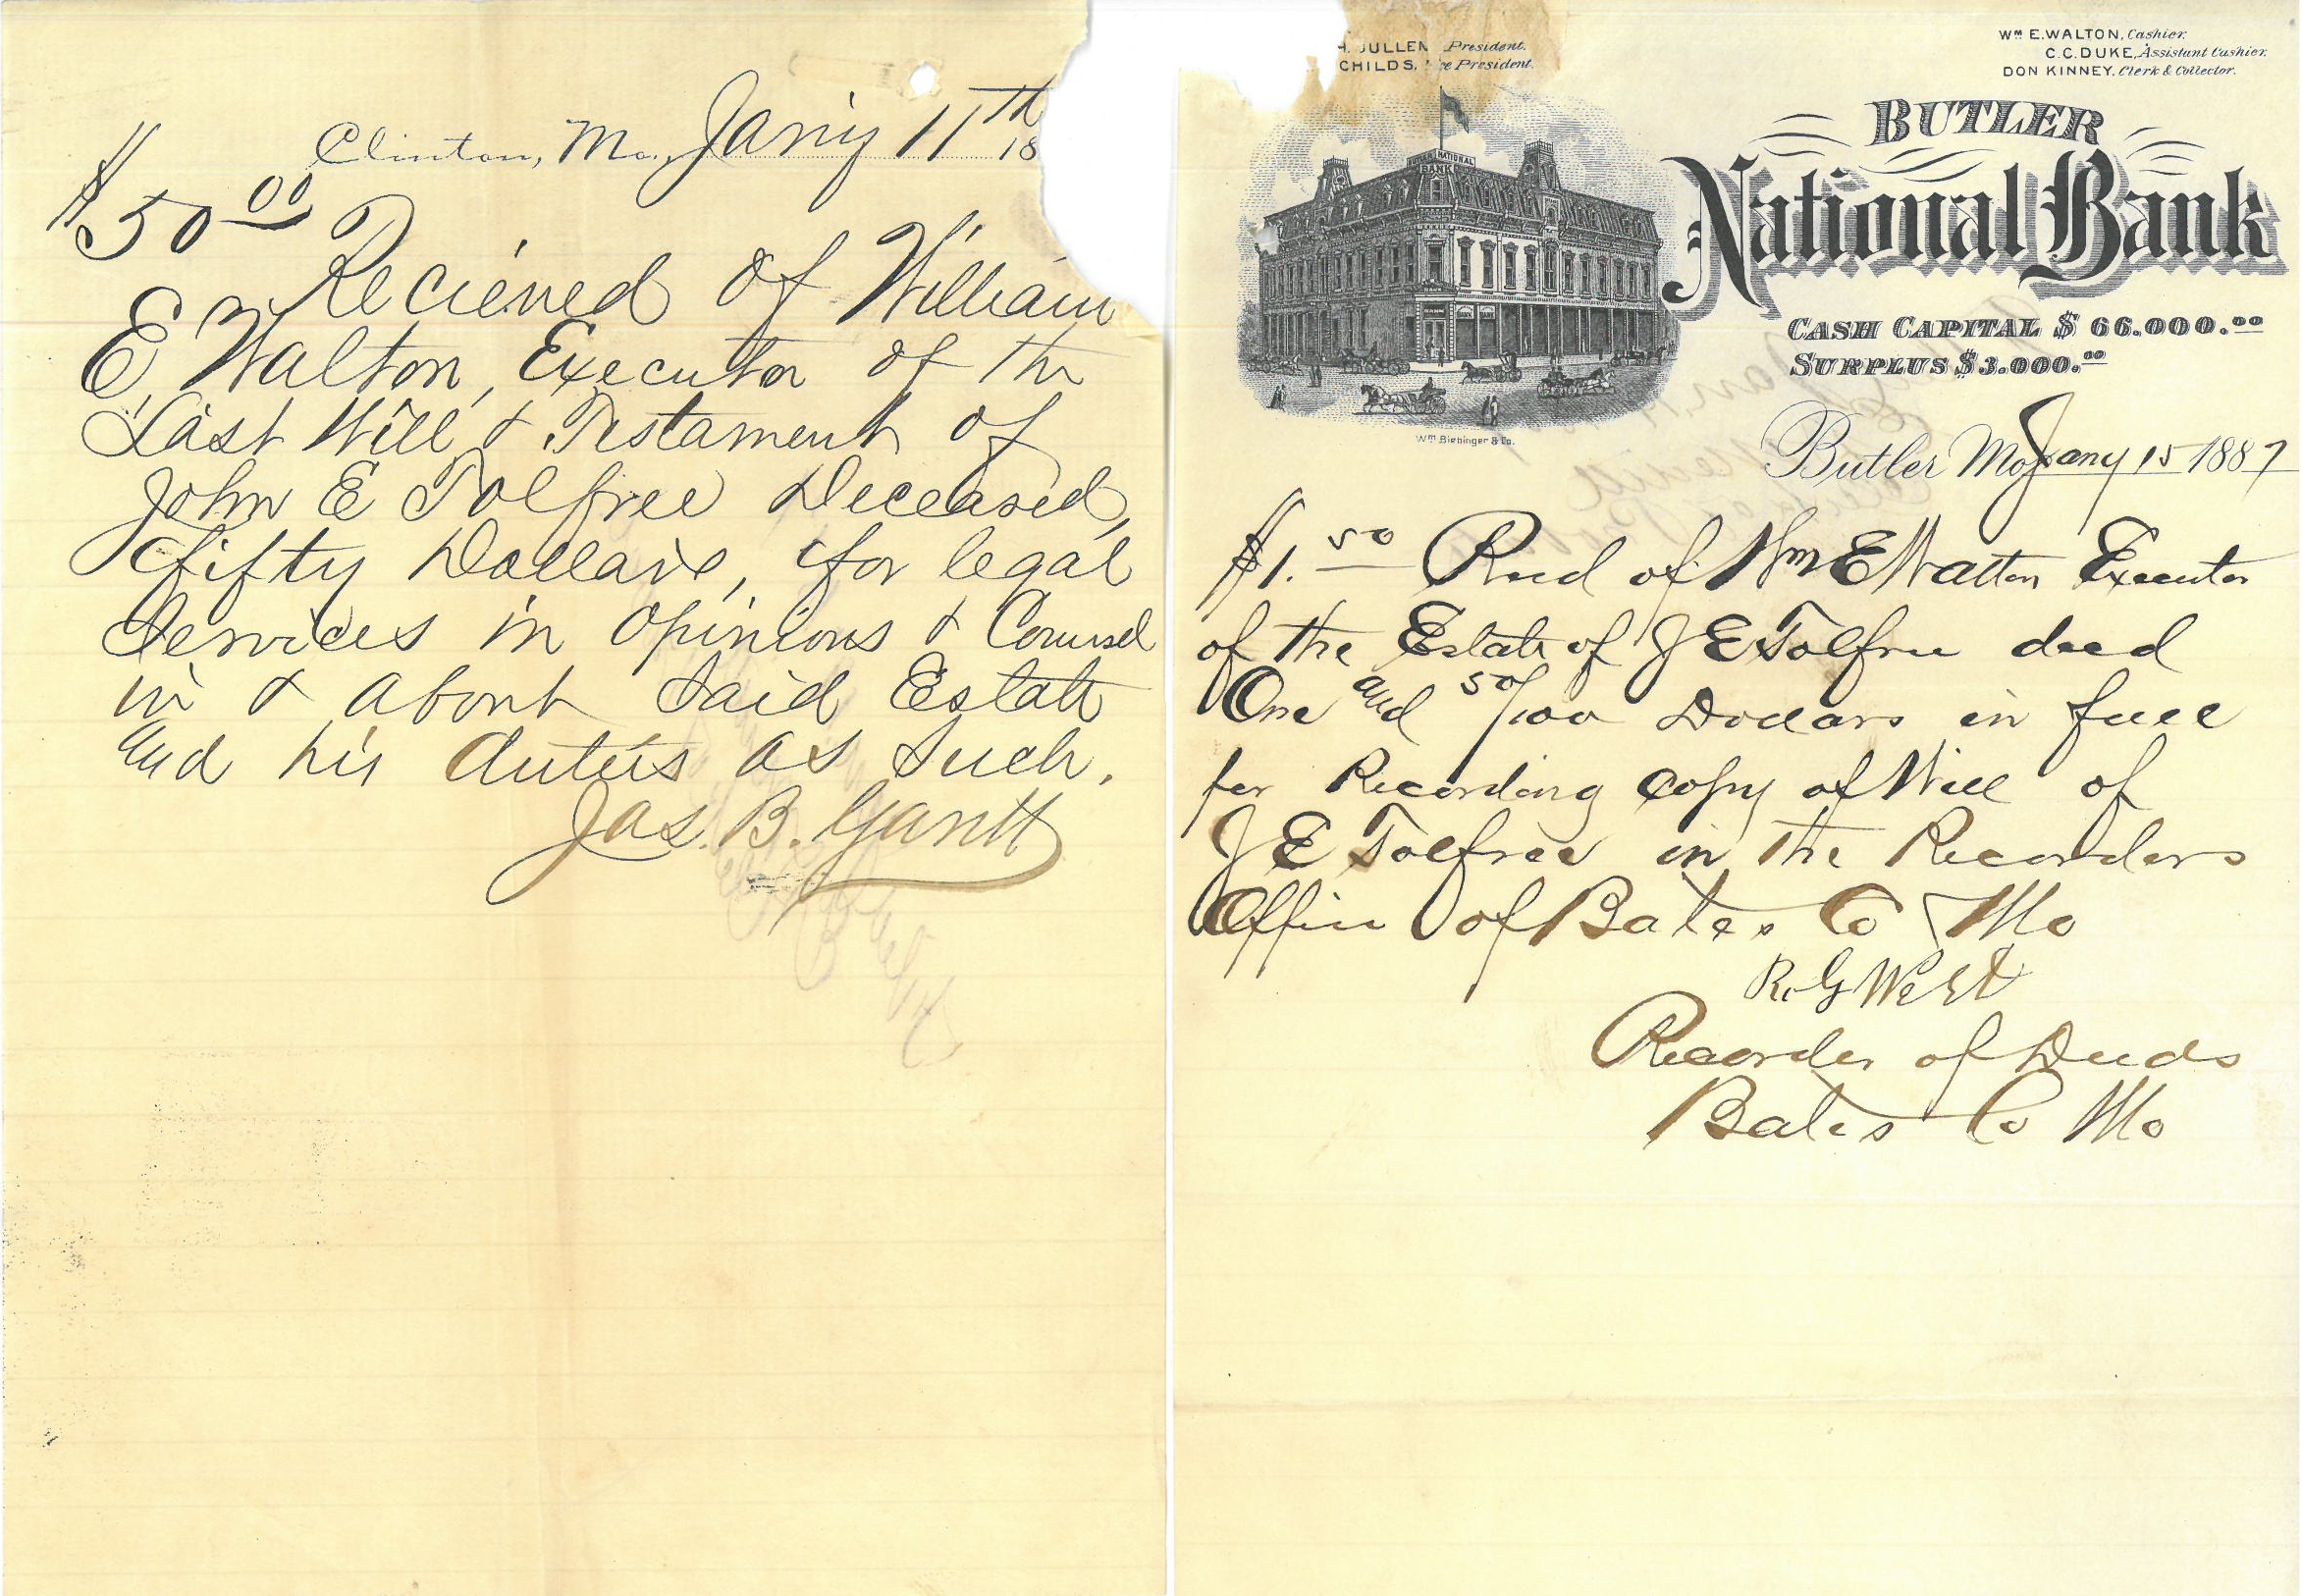 Clinton, Mo., Jan'y 11th 18
$50 00
Recieved of William
E. Walton, Executor of the
Last Will & Testament of
John E Tolfree Deceased,
fifty Dollars, for legal
Services in opinions & Counsel
in & about said Estate
and his duties as such.
Jas. B. Gantt
H. JULLEN President.
CHILDS, President.
Wm E. WALTON, Cashier.
C. C. DUKE, Assistant Cashier.
DON KINNEY, Clerk & Collector.
BUTLER NATIONAL
BANK
BUTLER
National Bank
CASH CAPITAL $ 66.000.00
SURPLUS $3.000.00
Wm Biebinger & Co.
Butler Mo Jany 15 1887
$1. 50 Recd of Wm E Walton Executor
of the Estate of J E Tolfree decd
One and 50/100 Dollars in full
for Recording copy of Will of
J E Tolfree in the Recorders
Office of Bates Co Mo
R. G West
Recorder of Deeds
Bates Co Mo